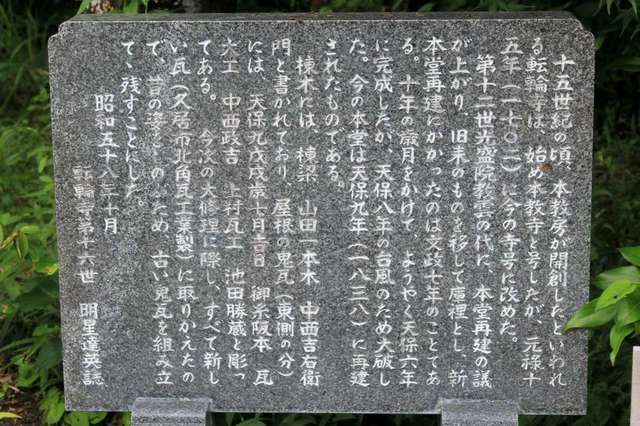 十五世紀の頃、本教房が開創したといわれ
る転輪寺は、始め本教寺と号したが、元禄十
五年(一七〇二)に今の寺号に改めた。
第十二世光盛院教雲の代に、本堂再建の議
が上がり、旧来のものを移して庫裡とし、新
本堂再建にかかったのは文政十年のことであ
る。十年の歳月をかけて、ようやく天保六年
に完成したが、天保八年の台風のため大破し
た。今の本堂は天保九年(一八三八)に再建
されたものである。
棟木には、棟梁 山田一本木 中西吉右衛
門と書かれており、屋根の鬼瓦(東側の分)
には、天保九戊戌歳十月吉日 御糸阪本 瓦
大工 中西政吉 上村瓦工 池田勝蔵と彫っ
てある。 今次の大修理に際し、すべて新し
い瓦(久居市北角瓦工業製)に取りかえたの
で、昔の姿をしのぶため、古い鬼瓦を組み立
て、残すことにした。
昭和五十八年十月
転輪寺第十六世 明星達英誌